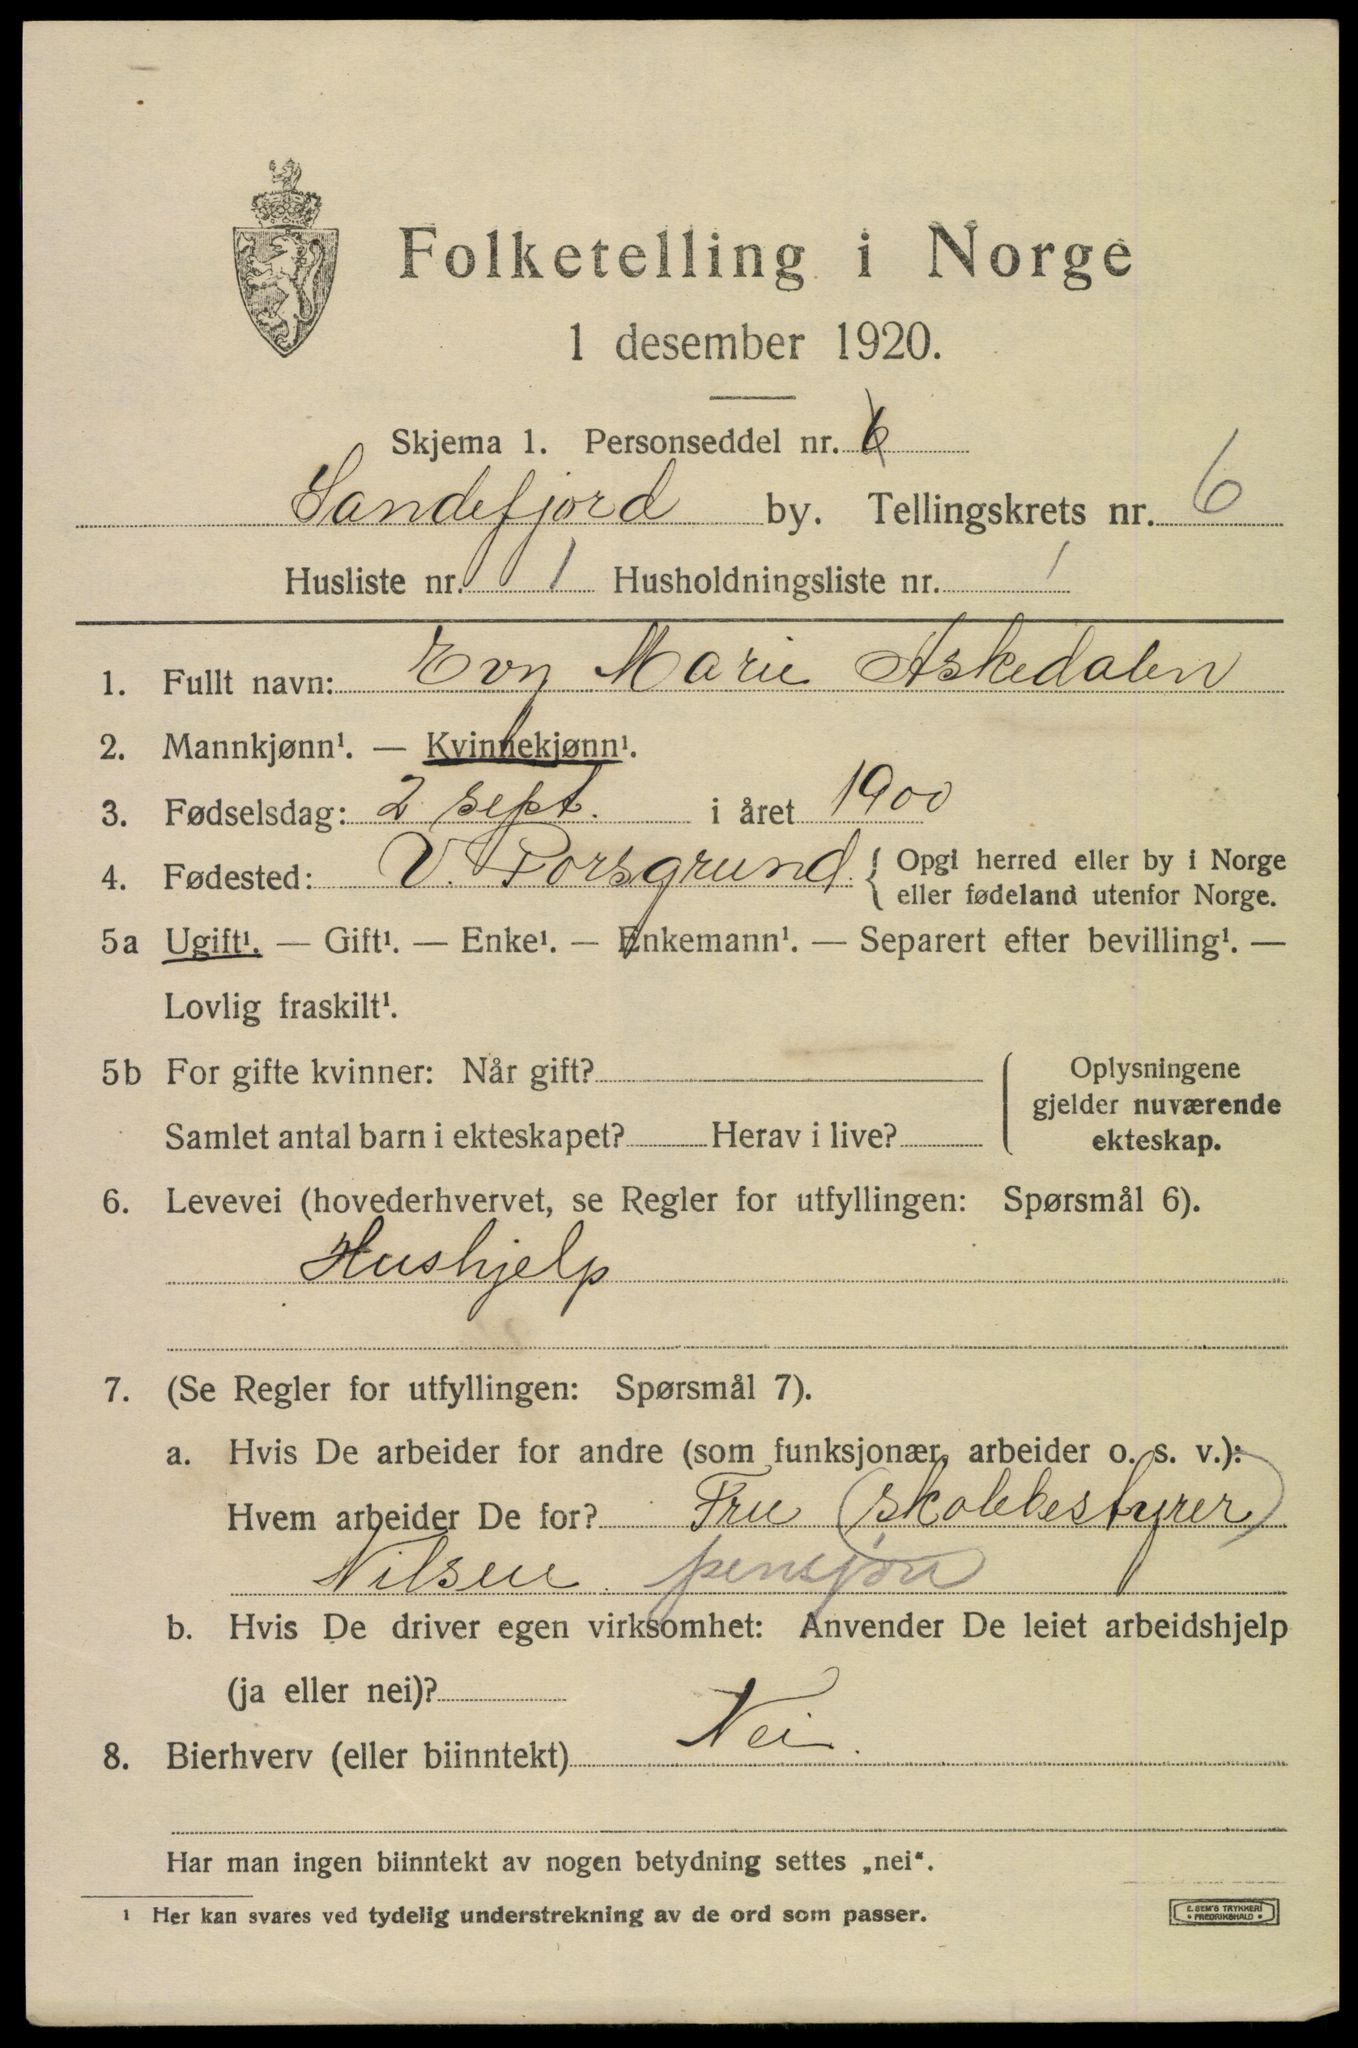 Folketelling i Norge
1 desember 1920.
Skjema 1. Personseddel nr. 6
Sandefjord by. Tellingskrets nr. 6
Husliste nr. 1 Husholdningsliste nr. 1
1. Fullt navn: Evy Marie Askedalen
2. Mannkjønn¹. — Kvinnekjønn¹.
3. Fødselsdag: 2 sept. i året 1900
4. Fødested: V. Porsgrund { Opgi herred eller by i Norge
eller fødeland utenfor Norge.
5a Ugift¹. — Gift¹. — Enke¹. — Enkemann¹. — Separert efter bevilling¹. —
Lovlig fraskilt¹.
5b For gifte kvinner: Når gift?
Samlet antal barn i ekteskapet? Herav i live?
Oplysningene
gjelder nuværende
ekteskap.
6. Levevei (hovederhvervet, se Regler for utfyllingen: Spørsmål 6).
Hushjelp
7. (Se Regler for utfyllingen: Spørsmål 7).
a. Hvis De arbeider for andre (som funksjonær, arbeider o. s. v.):
Hvem arbeider De for? Fru (skolebestyrer)
Nilsen pensjon
b. Hvis De driver egen virksomhet: Anvender De leiet arbeidshjelp
(ja eller nei)?
8. Bierhverv (eller biinntekt) Nei.
Har man ingen biinntekt av nogen betydning settes „nei“.
¹ Her kan svares ved tydelig understrekning av de ord som passer.
E. SEM'S TRYKKERI
• FREDRIKSHALD •